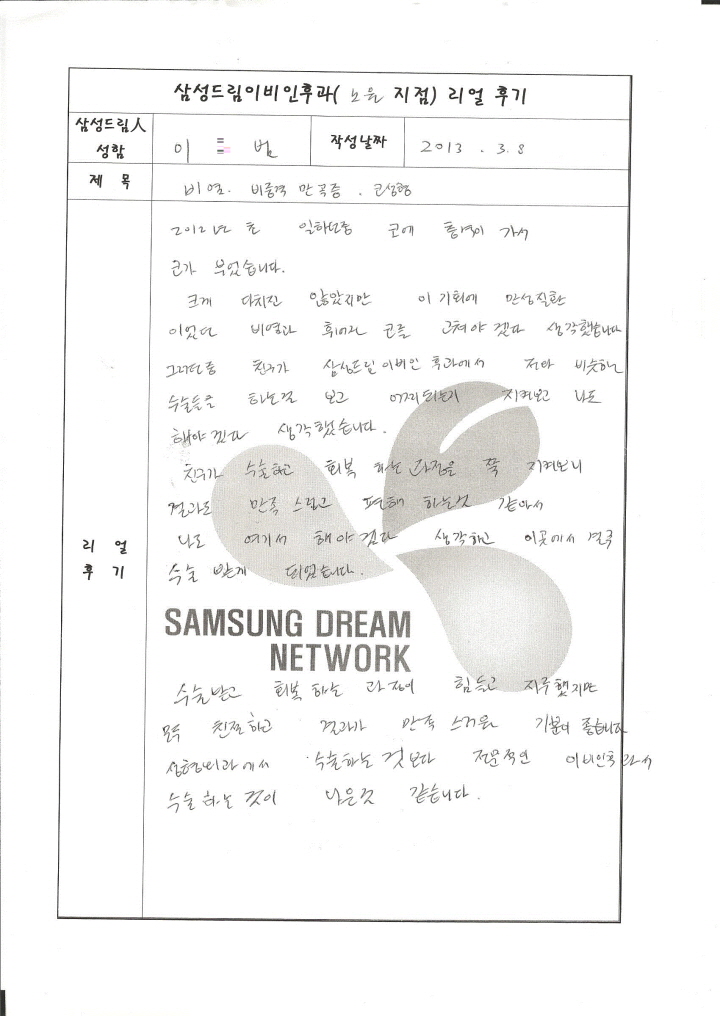 삼성드림이비인후과( 노원 지점) 리얼 후기
삼성드림人 성함
이 범
작성날짜
2013 . 3. 8
제 목
비염. 비중격 만곡증 . 코성형
리 얼 후 기
2012년 초 일하던중 코에 충격이 가서
코가 부었습니다.
크게 다치진 않았지만 이 기회에 만성질환
이었던 비염과 휘어진 코를 고쳐야 겠다 생각했습니다
그러던중 친구가 삼성드림이비인후과에서 저와 비슷한
수술들을 하는걸 보고 어찌되는지 지켜보고 나도
해야 겠다 생각했었습니다.
친구가 수술하고 회복 하는 과정을 쭉 지켜보니
결과도 만족 스럽고 편해 하는것 같아서
나도 여기서 해야겠다 생각하고 이곳에서 결국
수술 받게 되었습니다.
SAMSUNG DREAM
NETWORK
수술받고 회복 하는 과정이 힘들고 지루했지만
모두 친절하고 결과가 만족 스러워 기분이 좋습니다
성형외과에서 수술하는 것보다 전문적인 이비인후과서
수술 하는 것이 나은것 같습니다.